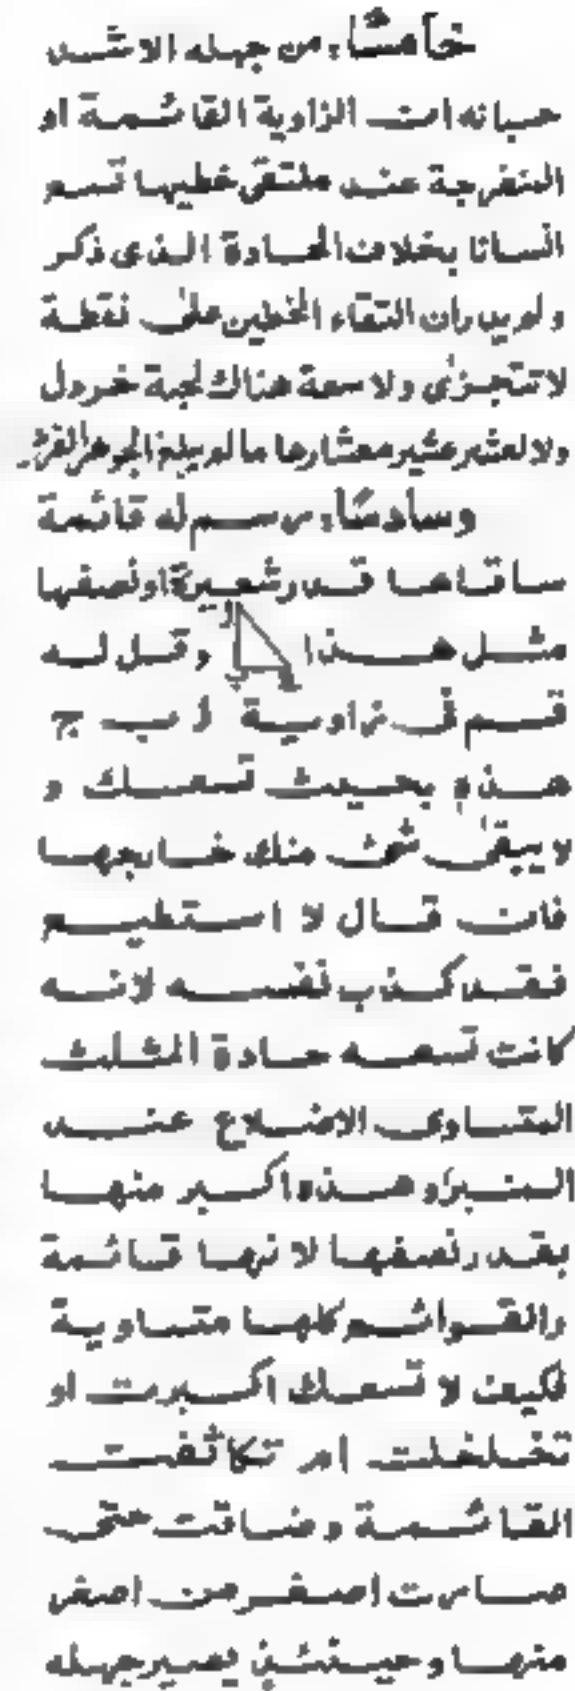 خامسًا، من جهله الاشد
حسبانه ان الزاوية القائمة او
المنفرجة عند ملتقى خطيها تسع
انسانا بخلاف الحادة الذى ذكر
ولم يدر ان التقاء الخطين على نقطة
لا تتجزى ولا سعة هناك لحبة خردل
ولا لعشر عشير معشارها ما لم يبلغ الجوهر الفرد
وسادسًا، يرسم له قائمة
ساقاها قدر شعيرة او نصفها
مثل هذا وقل له
ا
ب ج
قم فى زاوية ا ب ج
هذه بحيث تسعك و
لا يبقى شئ منك خارجها
فان قال لا استطيع
فقد كذب نفسه لانه
كانت تسعه حادة المثلث
المتساوى الاضلاع عند
المنبر وهذه اكبر منها
بقدر نصفها لانها قائمة
والقوائم كلها متساوية
فكيف لا تسعك اكبرت او
تخلخلت ام تكاثفت
القائمة وضاقت حتى
صارت اصغر من اصغر
منها وحينئذ يصير جهله